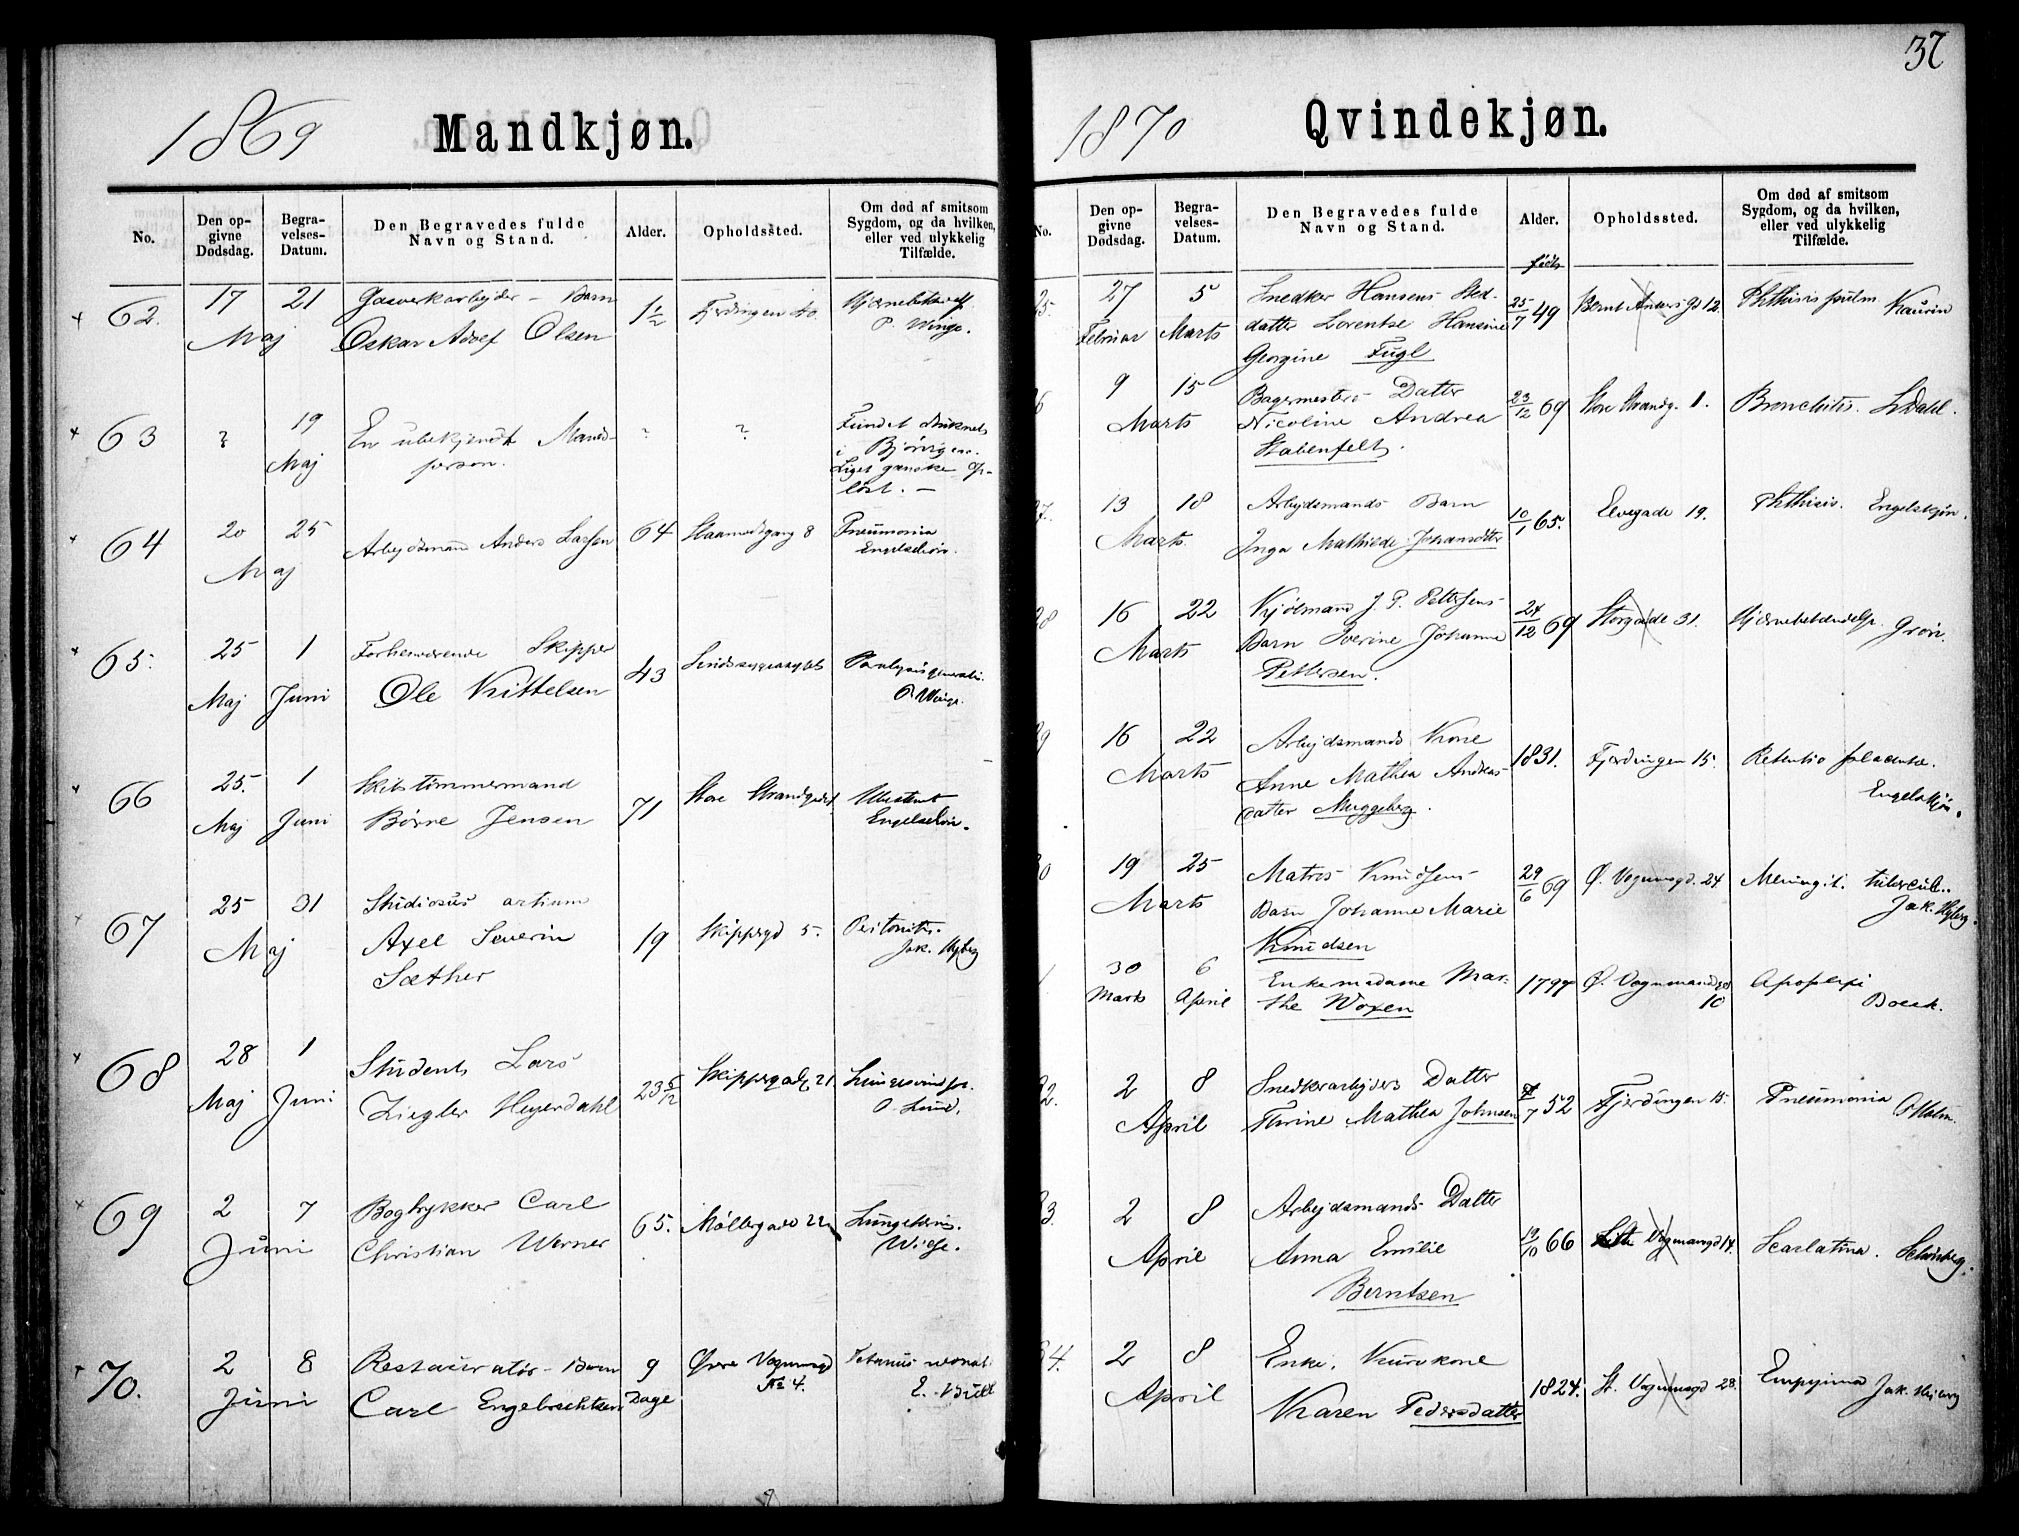 37
1869 Mandkjøn.
No.
Den opgivne Dødsdag.
Begravelses-Datum.
Den Begravedes fulde Navn og Stand.
Alder.
Opholdssted.
Om død af smitsom Sygdom, og da hvilken, eller ved ulykkelig Tilfælde.
62. 17 21 Gasverkarbejder - Barn 1½ Fjerdingen 40
Maj Oskar Adolf Olsen P. Winge.
63 ? 19 En ubekjendt Mands- ? ? Fundet druknet
Maj person. i Bjørvigen.
Liget ganske op-
løst. -
64 20 25 Arbejdsmand Anders Larsen 64 8 Pneumonia
Maj Engelskjøn.
65. 25 1 Forhenværende Skipper 43 Sindssygeasylet Paralysis generalis.
Maj Juni Ole Kittelsen P. Winge.
66 25. 1 Skibstømmermand 71 Store Strandgade
Maj Juni Børre Jensen Engelskjøn.
67 25 31 Studiosus artium 19 Skipperg 5. Peritonitis.
Maj Axel Severin Jak. Hjberg
Sæther
68 28 1 Student Lars 23 5/12 Skippergade 21 Lungesvindsot.
Maj Juni Ziegler Heyerdahl O. Lund.
69 2 7 Bogtrykker Carl 65. Møllergade 22
Juni Christian Werner
70. 2 8 Restauratør - Barn 9 Øvre Vognmgd Tetanus neonat.
Juni Carl Engebrechtsen Dage № 4. E. Bull
1870 Qvindekjøn.
No.
Den opgivne Dødsdag.
Begravelses-Datum.
Den Begravedes fulde Navn og Stand.
Alder.
født
Opholdssted.
Om død af smitsom Sygdom, og da hvilken, eller ved ulykkelig Tilfælde.
25. 27 5 Snedker Hansens Sted- 25/7 49 Bernt Ankers gd 12. Phthisis pulm Kaurin
Februar Marts datter Lorentse Hansine
Georgine Fugl
6 9 15 Bagermesters Datter 23/12 69 Store Strandg. 1. Bronchitis. L. Dahl.
Marts Nicoline Andrea
Stabenfeldt.
27. 13 18 Arbejdsmands Barn 10/1 65. Elvegade 19. Phthisis. Engelskjøn.
Marts Inga Mathilde Johansdtter
28 16 22 Kjøbmand J. P. Pettersens 27/12 69 Storgade 31. Hjernebetændelse. Grøn.
Marts Barn Iverine Johanne
Pettersen.
9 16 22 Arbejdsmands Kone 1831. Fjerdingen 15. Retentio placentæ.
Marts Anne Mathea Andreas- Engelskjøn.
datter Muggeberg.
0 19 25 Matros Knudsens 29/6 69 Ø. Vognmgd. 24 Meningit. tubercul..
Marts Barn Johanne Marie Jak. Hjberg.
Knudsen
1 30 6 Enkemadame Mar- 1797 Ø. Vognmandsgd Apoplexi
Marts April the Woxen 10 Boeck.
32. 2 8 Snedkerarbejders Datter 7 52 Fjerdingen 15. Pneumonia
April Thrine Mathea Johnsen Holm.
3. 2 8 Arbejdsmands Datter
April Anna Emilie 19/10 66 Lille Vognmangd 14. Scarlatina. Schønberg.
Berntsen
34. 2 8 Enke, Kurvkone
April Karen Pedersdatter 1824. St. Vognmgd 28. Empyema Jak. Hjberg